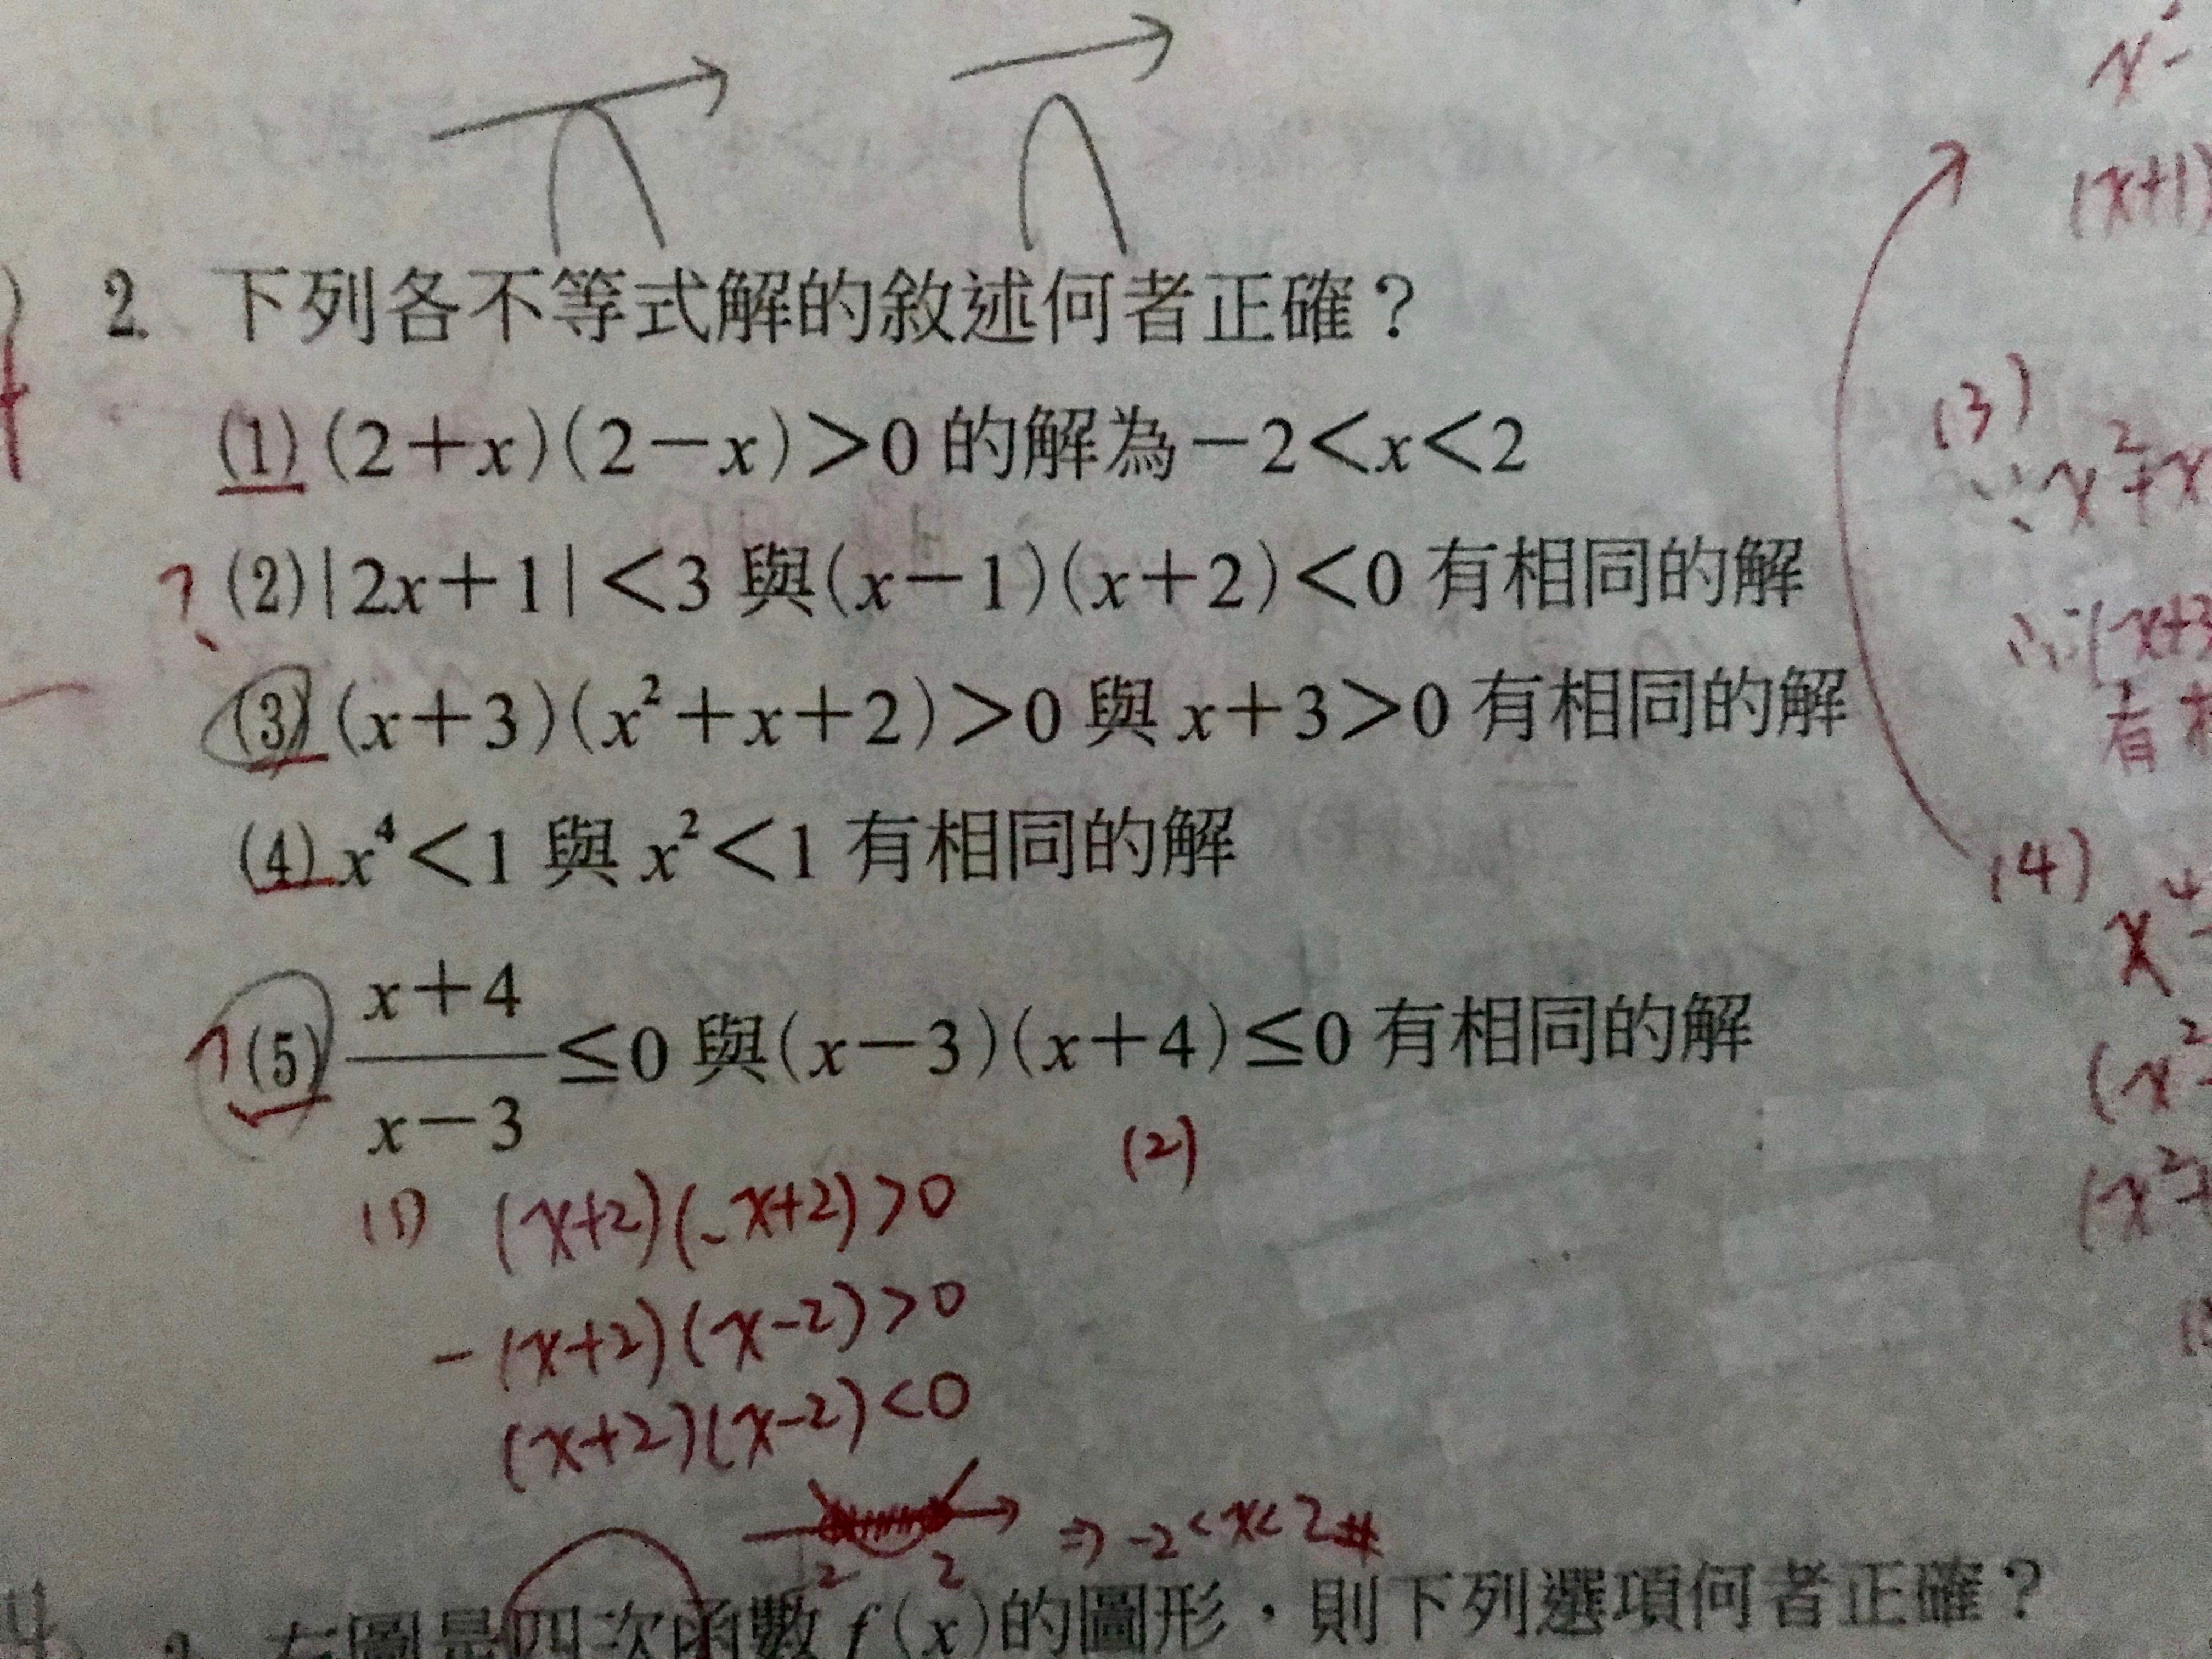 2. 下列各不等式解的敘述何者正確？
(1)(2+x)(2−x)>0 的解為−2<x<2
? (2)|2x+1|<3 與(x−1)(x+2)<0 有相同的解
(3)(x+3)(x²+x+2)>0 與 x+3>0 有相同的解
(4) x⁴<1 與 x²<1 有相同的解
(5) x+4/x−3 ≤0 與(x−3)(x+4)≤0 有相同的解
(1) (x+2)(-x+2)>0
-(x+2)(x-2)>0
(x+2)(x-2)<0
⇒ -2<x<2#
(2)
(x+1)
(3)
∵x²+x
∴(x+3
有
(4)
x⁴-
(x²
(x²+
右圖是四次函數 f(x)的圖形，則下列選項何者正確？